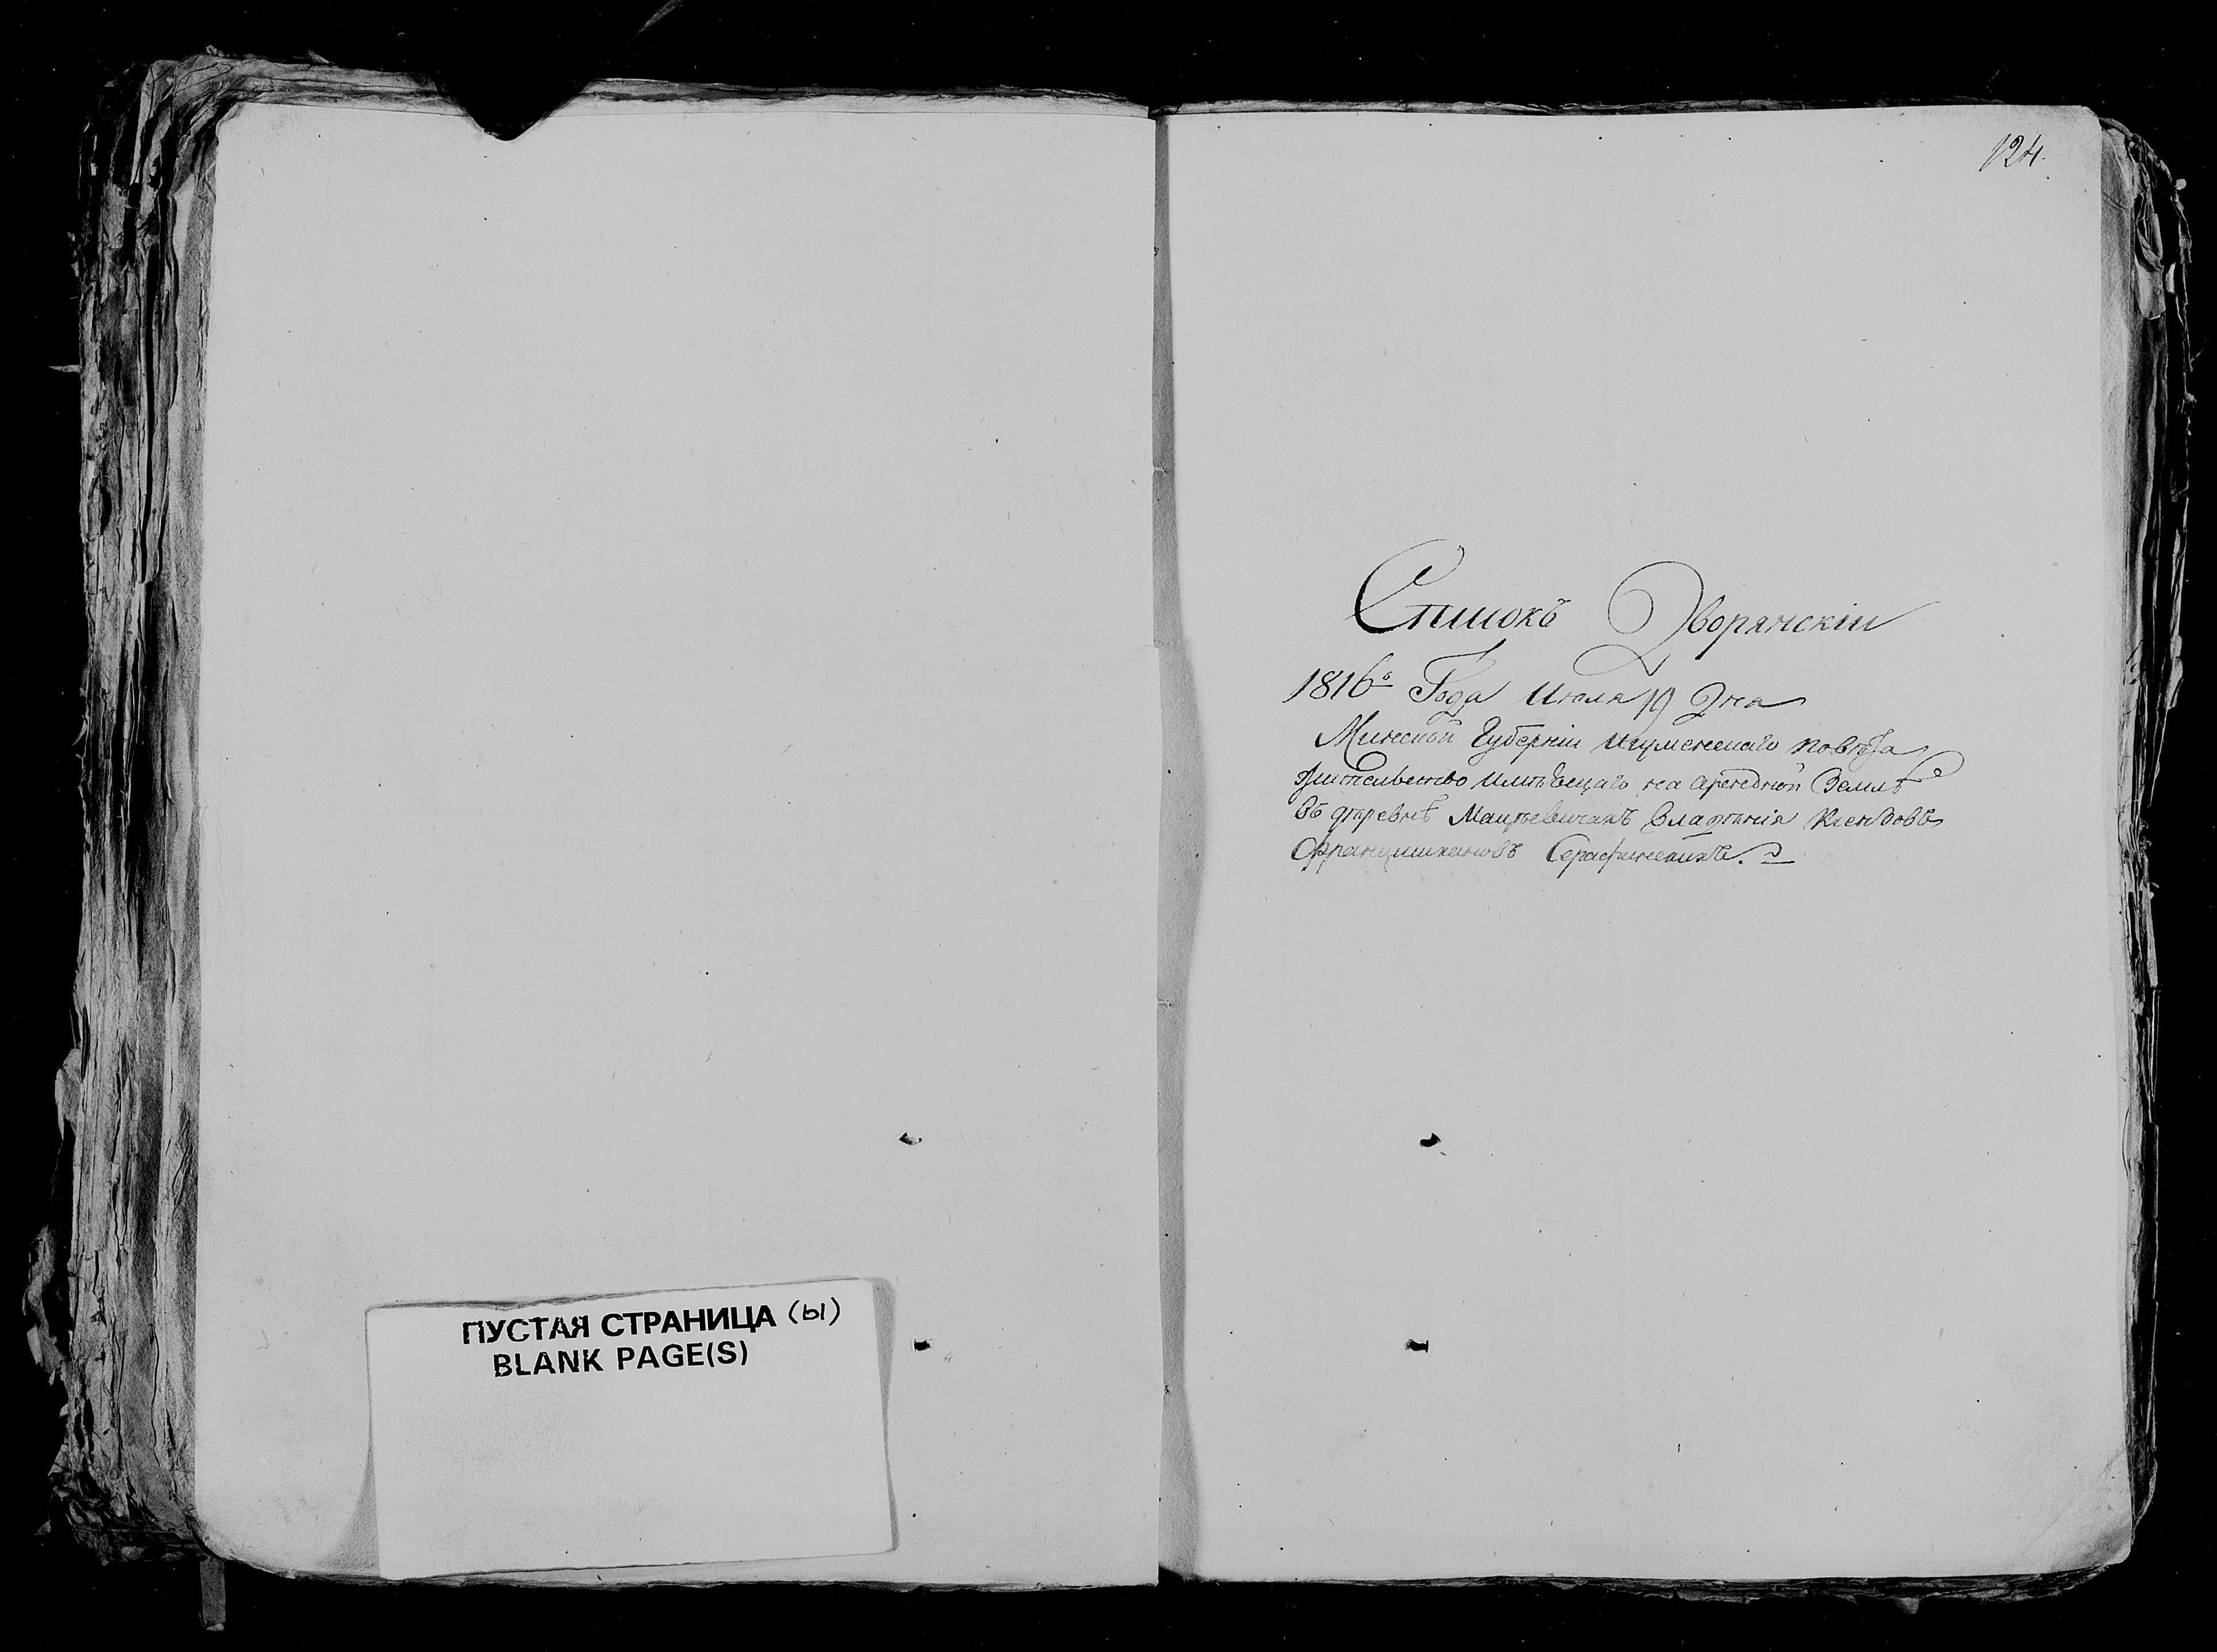 ПУСТАЯ СТРАНИЦА (ы)
BLANK PAGE(S)
124.
Списокъ Дворянскiи
1816го Года Июля 19 Дня
Минской Губернiи Игуменскаго повѣта
жительство имѣющаго на арендной Землѣ
въ деревнѣ Мацѣевичахъ владѣнiя Ксендовъ
Францишкановъ Серафинскихъ.